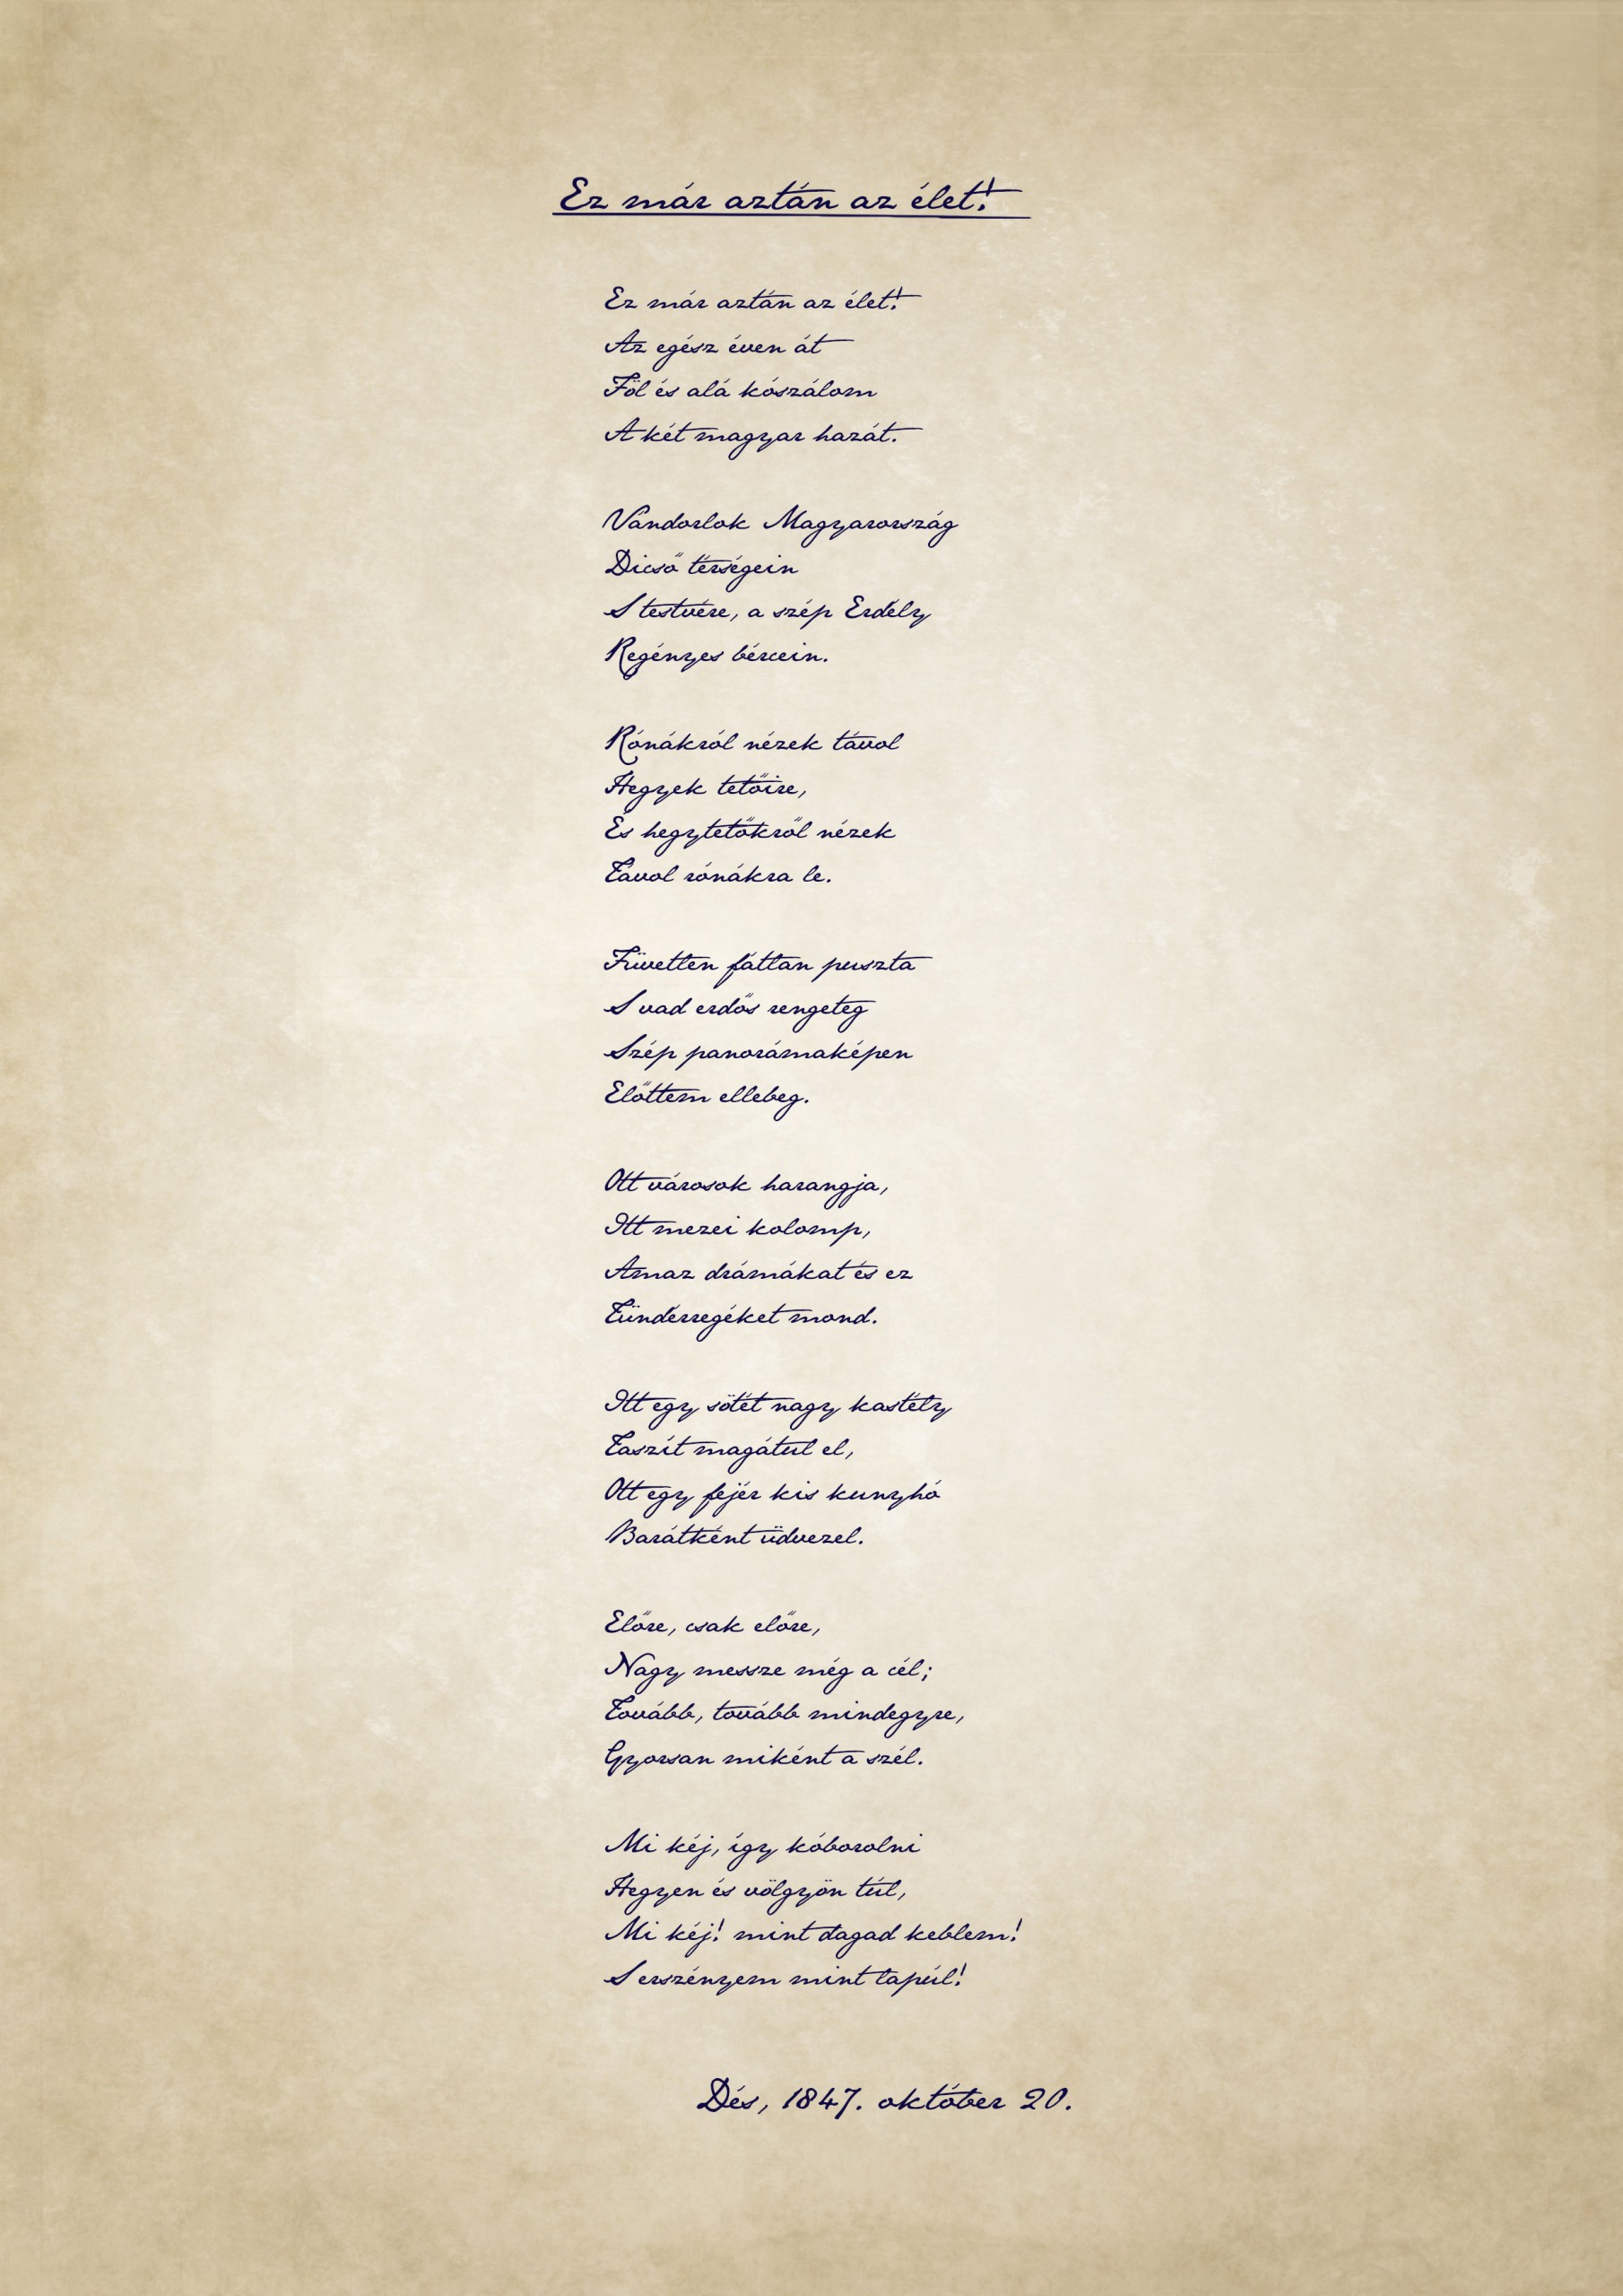 Ez már aztán az élet!
Ez már aztán az élet!
Az egész éven át
Föl és alá kószálom
A két magyar hazát.
Vándorlok Magyarország
Dicső térségein
S testvére, a szép Erdély
Regényes bércein.
Rónákról nézek távol
Hegyek tetőire,
És hegytetőkről nézek
Távol rónákra le.
Füvetlen fátlan puszta
S vad erdős rengeteg
Szép panorámaképen
Előttem ellebeg.
Ott városok harangja,
Itt mezei kolomp,
Amaz drámákat és ez
Tündérregéket mond.
Itt egy sötét nagy kastély
Taszít magátul el,
Ott egy fejér kis kunyhó
Barátként üdvezel.
Előre, csak előre,
Nagy messze még a cél;
Tovább, tovább mindegyre,
Gyorsan miként a szél.
Mi kéj, így kóborolni
Hegyen és völgyön túl,
Mi kéj! mint dagad keblem!
S erszényem mint lapúl!
Dés, 1847. október 20.